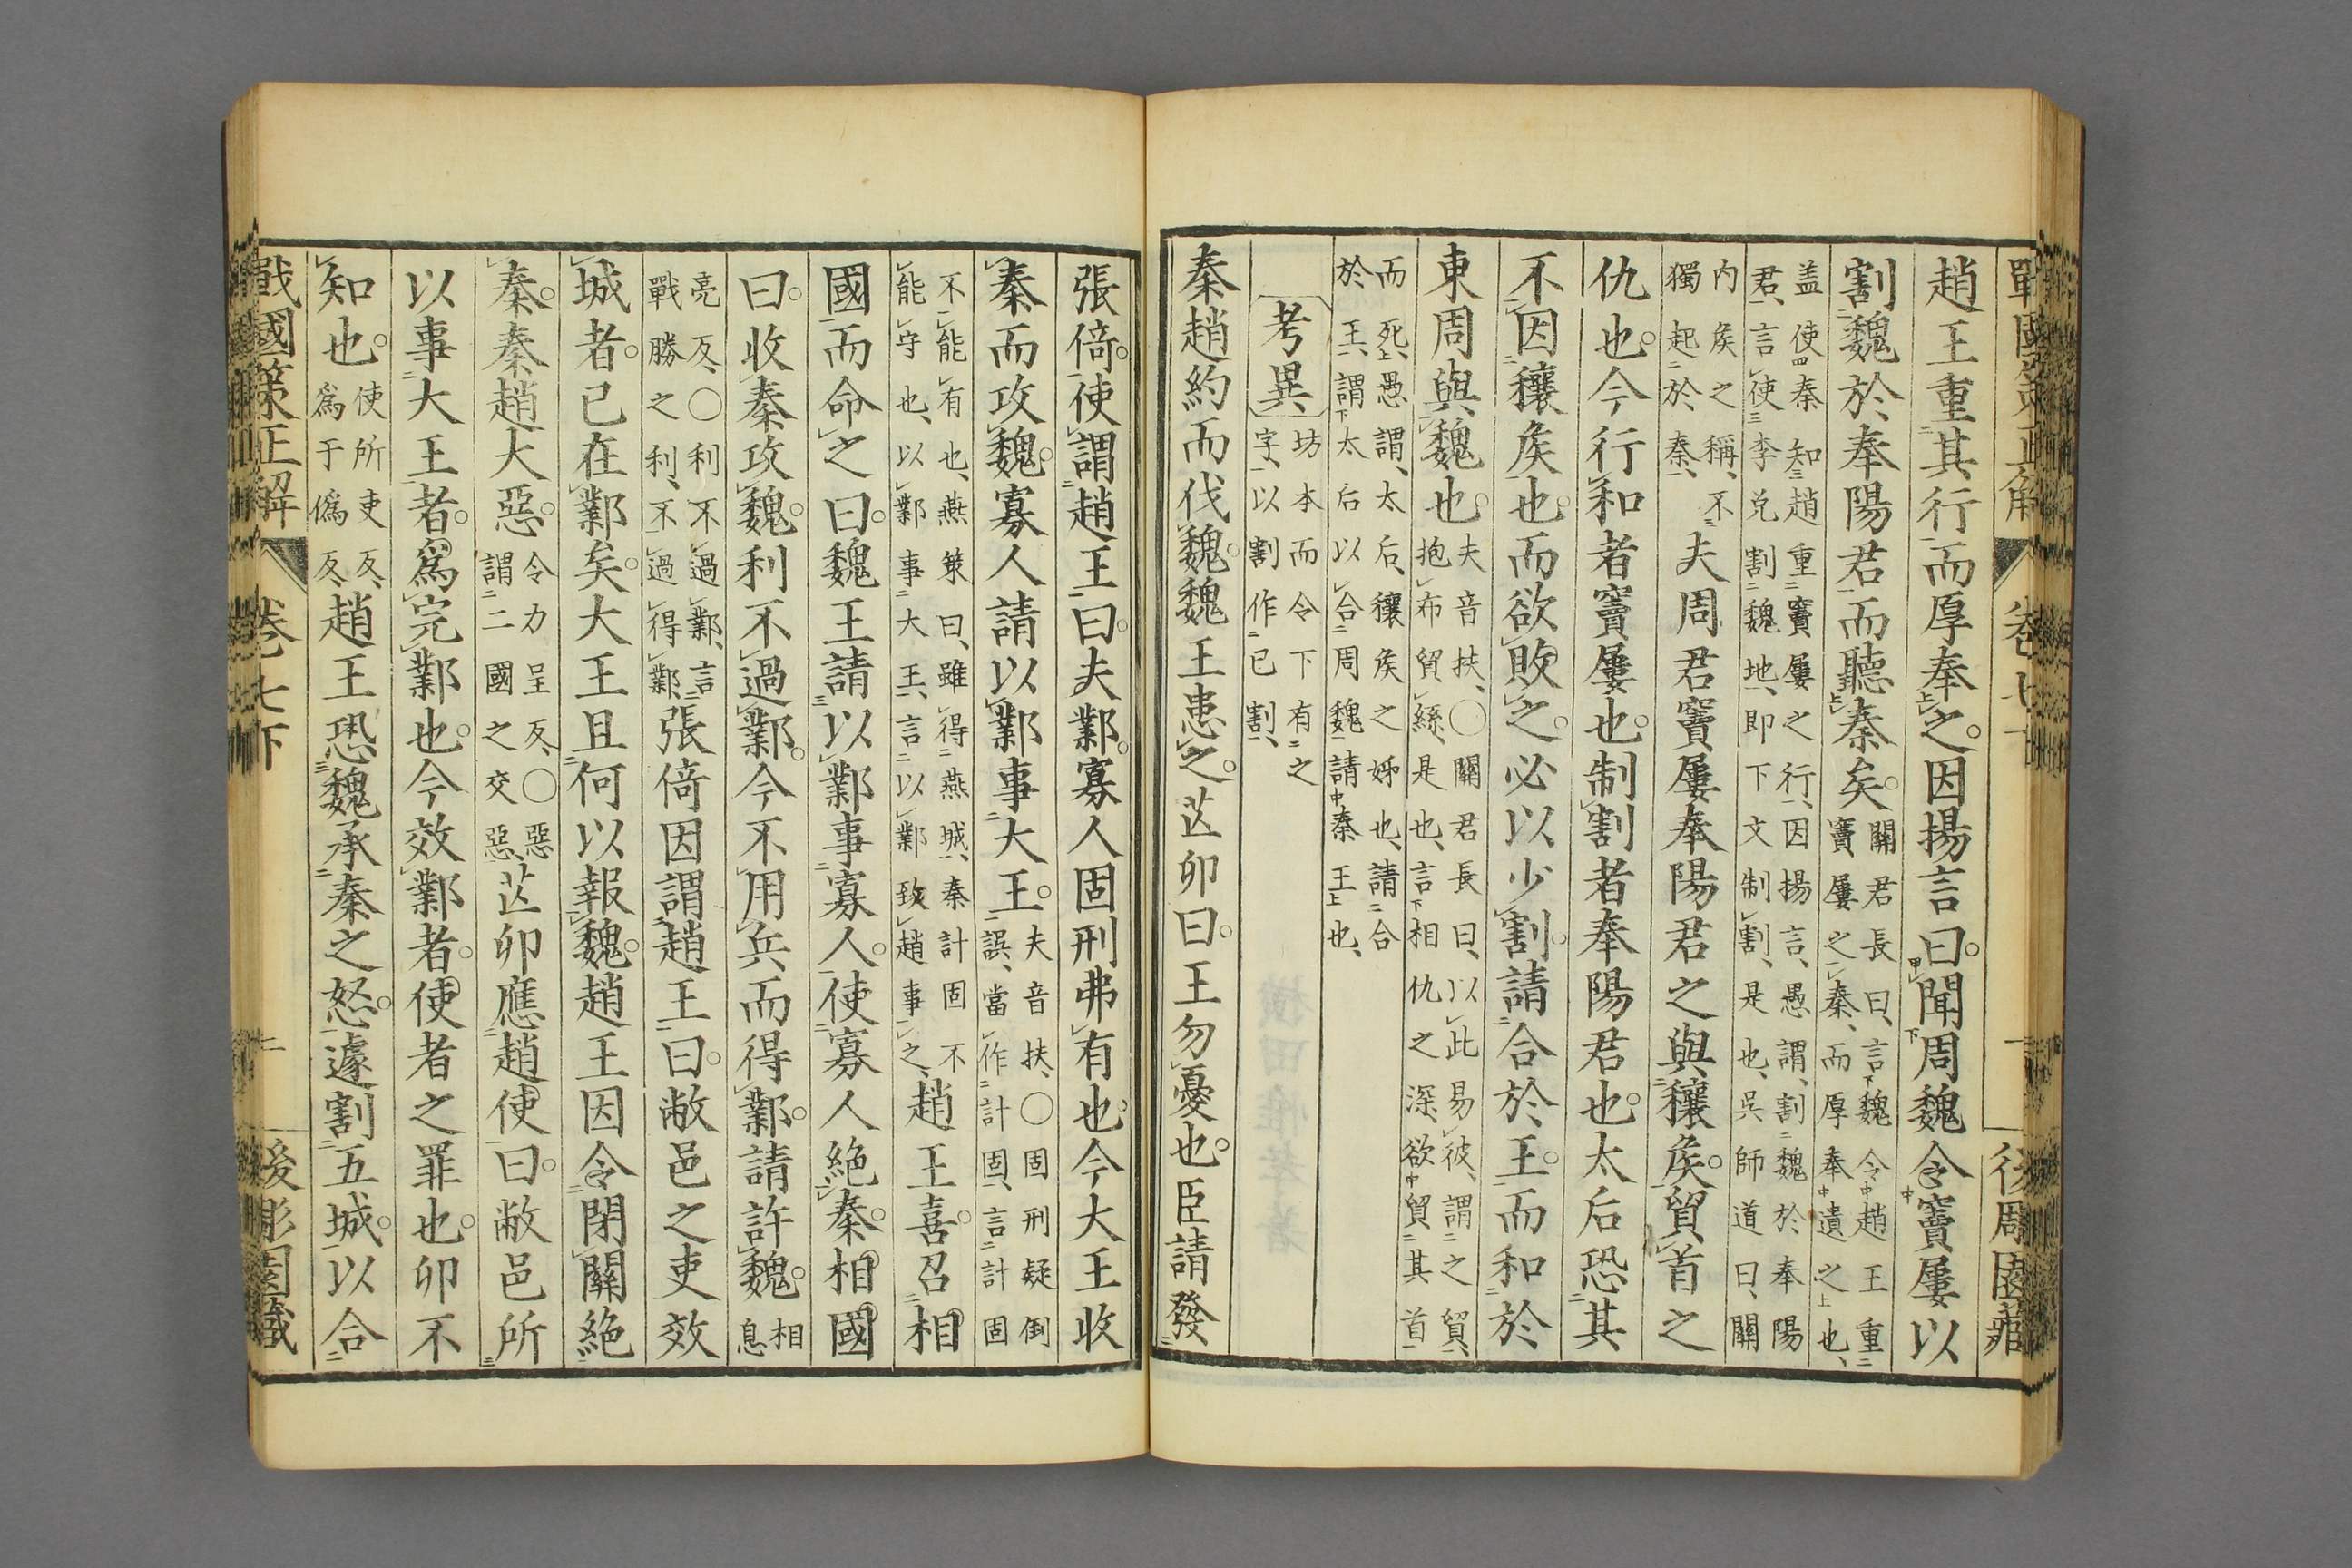 趙王重其行而厚奉之。因揚言曰。聞周魏令竇屢以
割魏於奉陽君而聽秦矣。關君長曰、言魏令趙王重
竇屢之秦、而厚奉遺之也、
盖使秦知趙重竇屢之行、因揚言、愚謂、割魏於奉陽
君、言使李兌割魏地、即下文制割、是也、吳師道曰、關
內矦之稱、不
獨起於、秦、
夫周君竇屢奉陽君之與穰矦。貿首之
仇也。今行和者竇屢也。制割者奉陽君也。太后恐其
不因穰矦也。而欲敗之。必以少割。請合於王。而和於
東周與魏也。夫音扶、○關君長曰、以此易彼、謂之貿、
抱布貿絲、是也、言相仇之深、欲貿其首
而死、愚謂、太后、穰矦之姊也、請合
於王、謂太后以合周魏請秦王也、
考異 坊本而令下有之
字、以割作已割、
秦趙約而伐魏。魏王患之。芒卯曰。王勿憂也。臣請發
張倚。使謂趙王曰。夫鄴。寡人固刑弗有也。今大王收
秦而攻魏。寡人請以鄴事大王。夫音扶、○固刑疑倒
誤、當作計固、言計固
不能有也、燕策曰、雖得燕城、秦計固不
能守也、以鄴事大王、言以鄴致趙事之、
趙王喜。召相
國而命之曰。魏王請以鄴事寡人。使寡人絶秦。相國
曰。收秦攻魏。利不過鄴。今不用兵而得鄴。請許魏。相
息
亮反、○利不過鄴、言
戰勝之利、不過得鄴、
張倚因謂趙王曰。敝邑之吏效
城者。已在鄴矣。大王且何以報魏。趙王因令閉關絶
秦。秦趙大惡。令力呈反、○惡
謂二國之交惡、
芒卯應趙使曰。敝邑所
以事大王者。爲完鄴也。今效鄴者。使者之罪也。卯不
知也。使所吏反、
爲于僞反、
趙王恐魏承秦之怒。遽割五城。以合
戰國策正解 卷七下 二